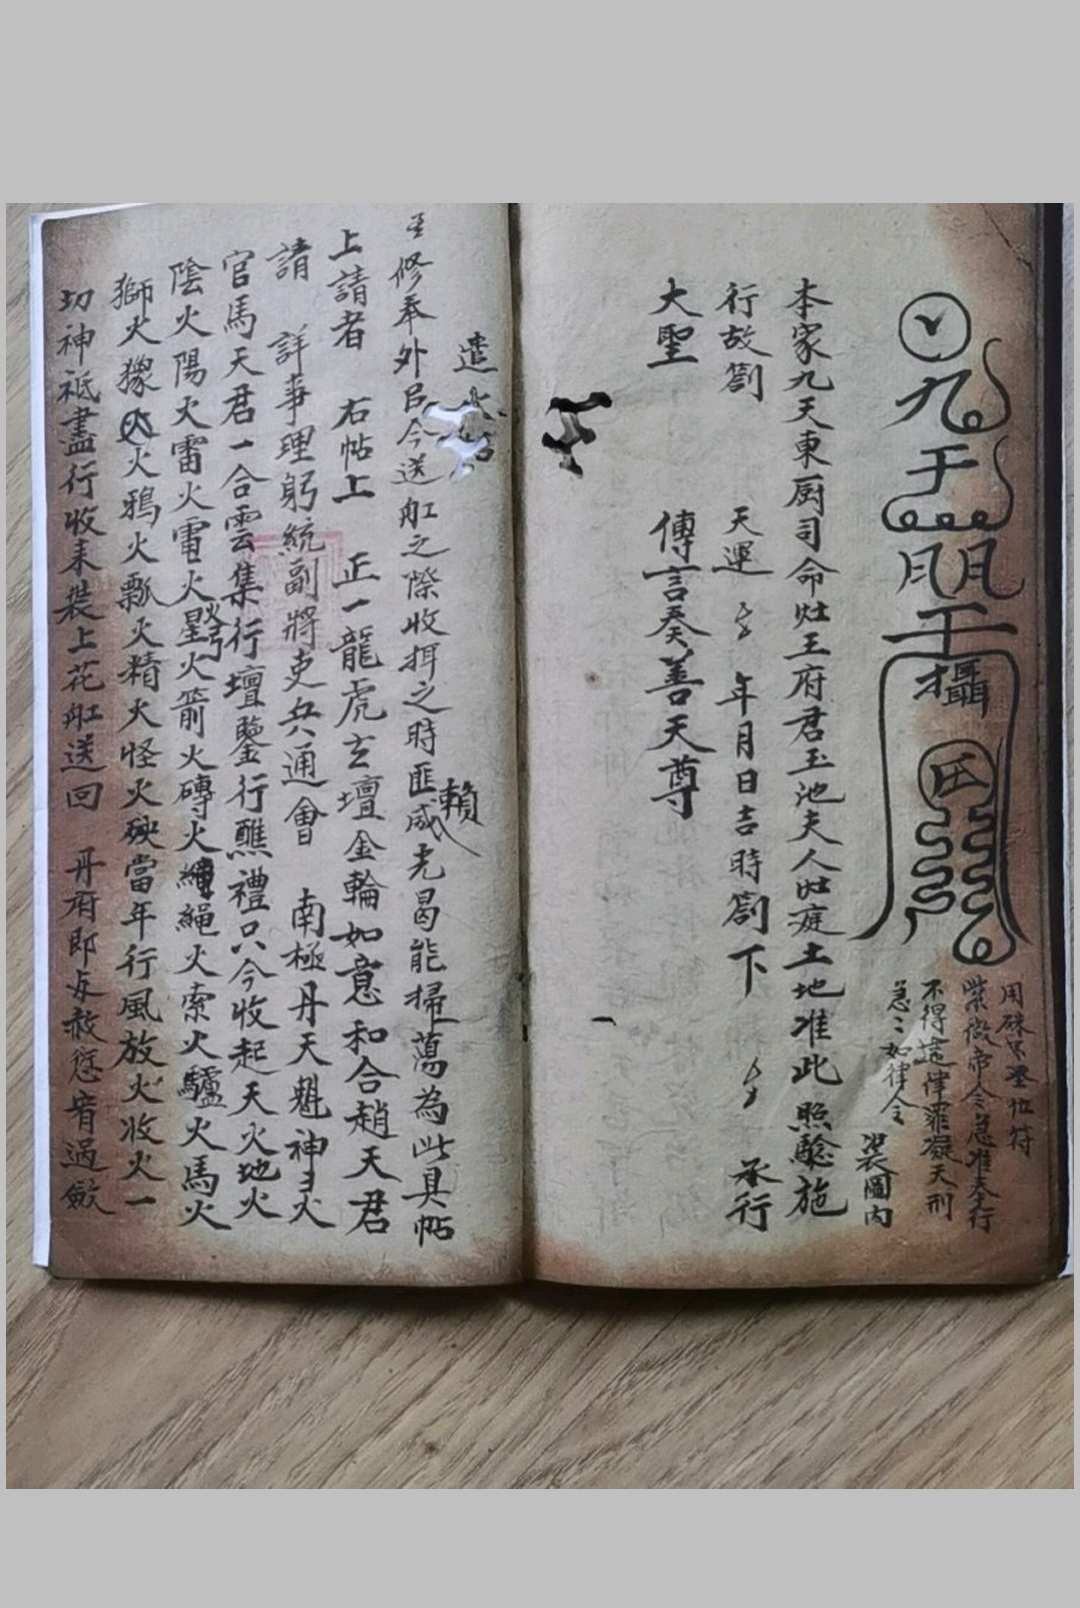 九
天
攝
用硃
紫微帝令急准奉行
不得違律罪凝天刑
急〻如律令
裝圖內
本家九天東厨司命灶王府君玉池夫人灶庭土地准此照驗施
行故劄 天運 年月日吉時劄下 承行
大聖 傳言奏善天尊
遣火帖
修奉外臣今送舡之際收揖之時匪賴威光曷能掃蕩為此具帖
上請者 右帖上 正一龍虎玄壇金輪如意和合趙天君
請 詳事理躬統副將吏兵通會 南極丹天魁神火
官馬天君一合雲集行壇鑒行醮禮只今收起天火地火
陰火陽火雷火電火星火弩火箭火磚火繩火索火驢火馬火
獅火獴火火鴉火瓢火精火怪火殃當年行風放火收火一
切神祇盡行收来裝上花舡送回 丹府即与赦愆宥過斂